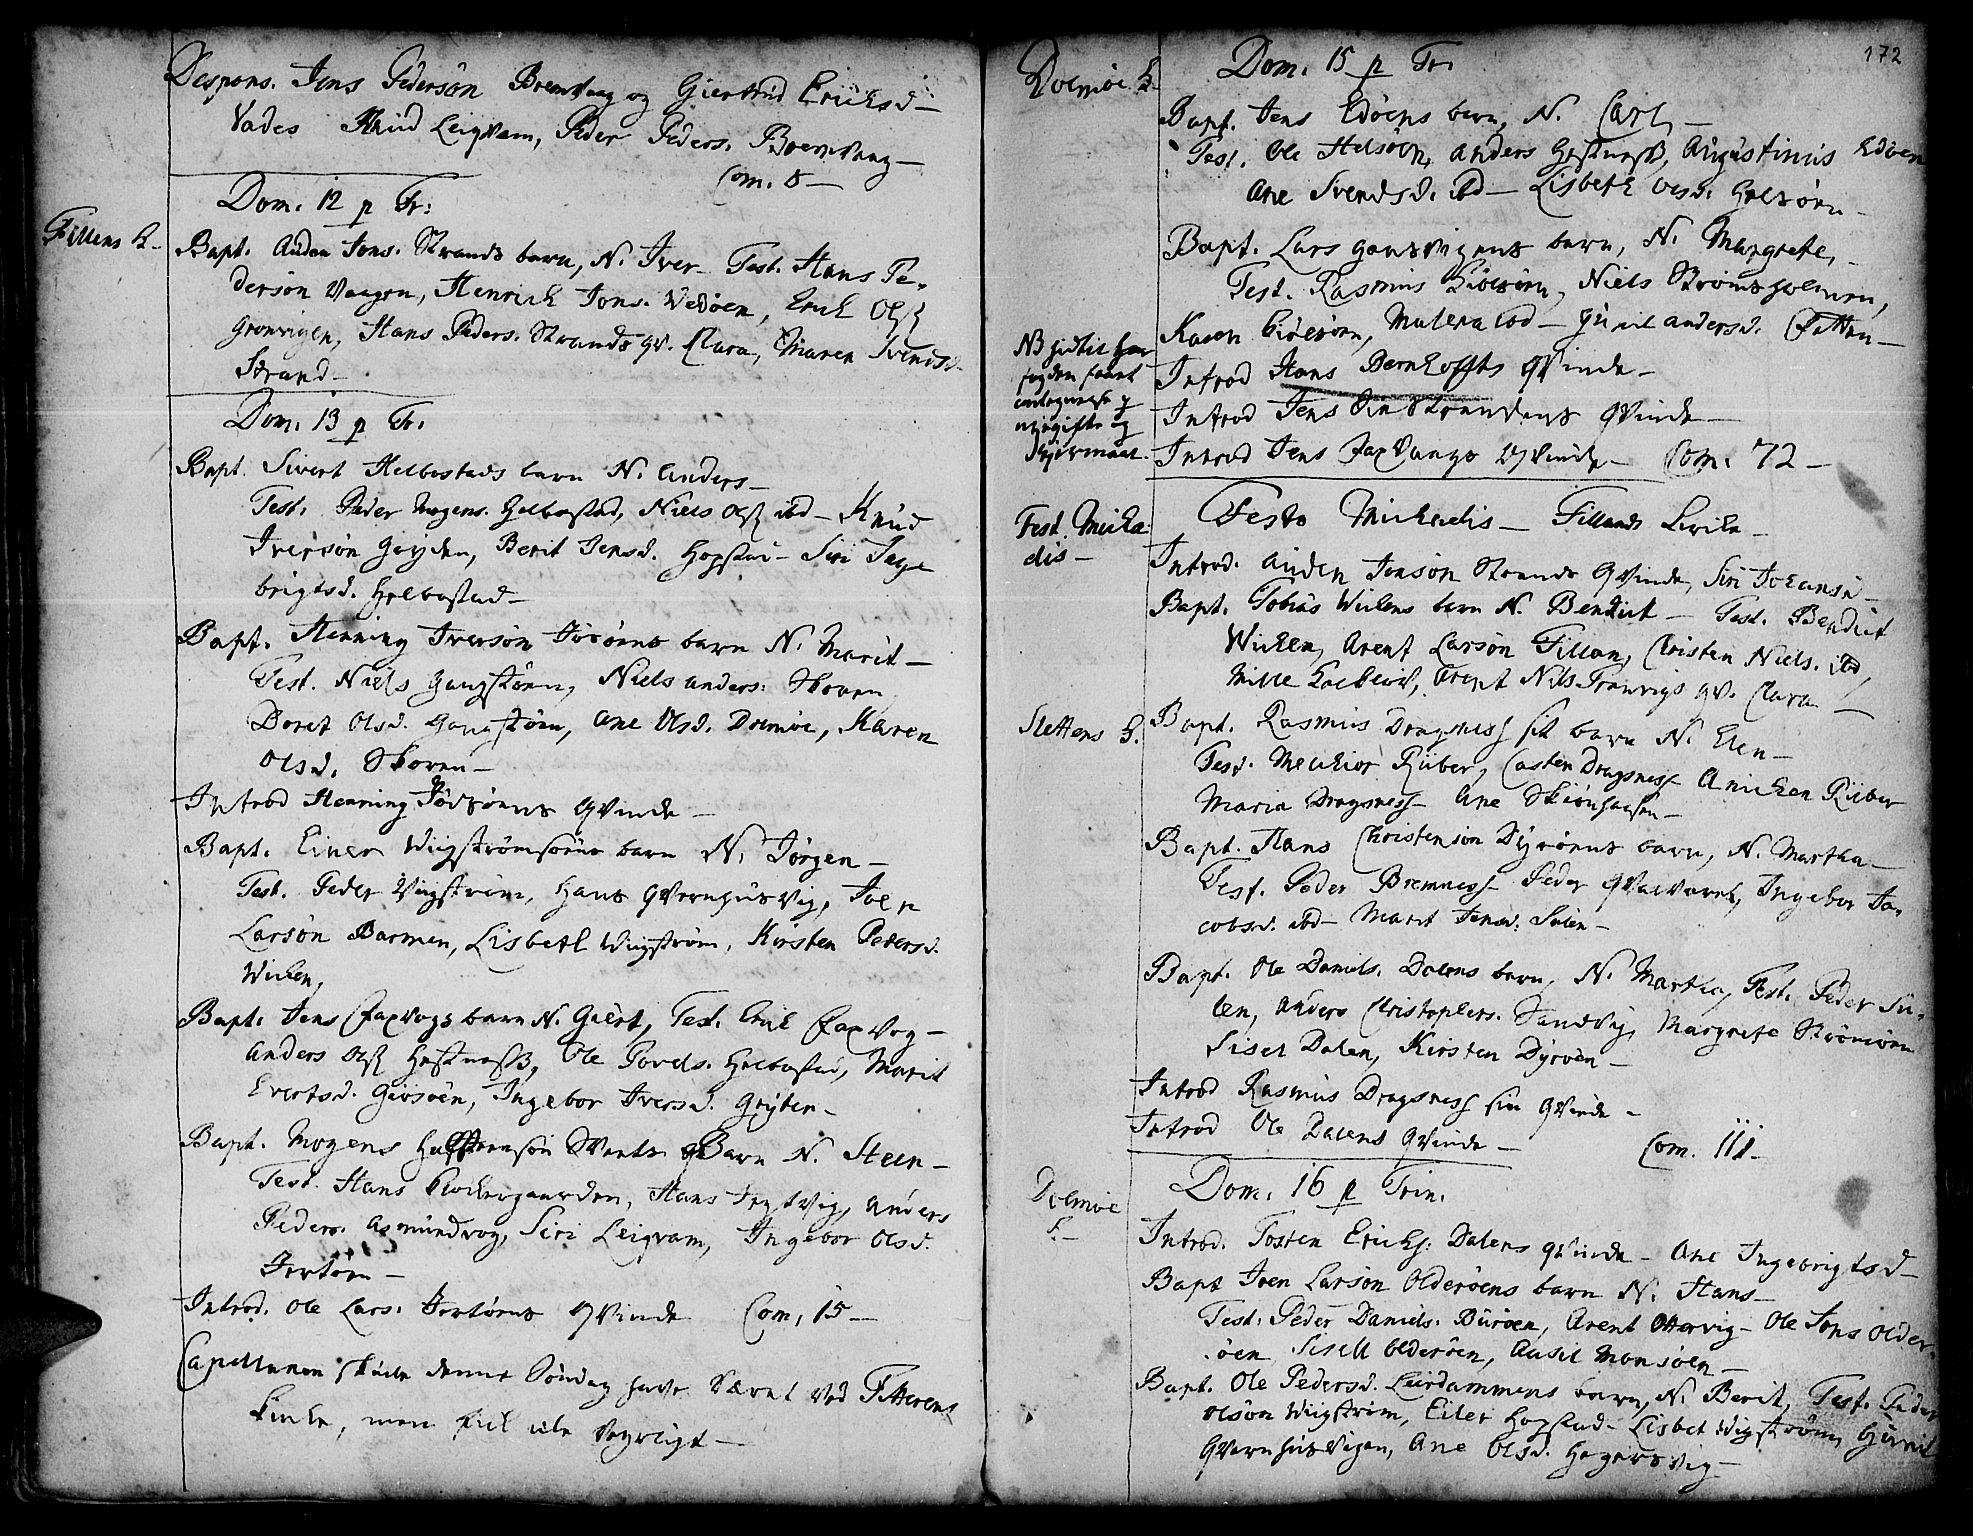 Despons. Jens Pedersön Bremvaag og Giertrud Ericksd –
Vades Knud Leigvam, Peder Peders. Bremvaag –
Com. 8 –
Dom. 12 p Tr:
Fillens K –
Bapt. Anden Jons. Strands barn, N. Iver – Test. Hans Pe-
dersön Vaagen, Henrich Jons. Vedöen, Erich Olss
Grönvigen, Hans Peders. Strands qv. Clara, Maren Svendsd.
Strand –
Dom. 13 p Tr.
Bapt. Sivert Helbostads barn N. Anders –
Test. Peder Mogens. Helbostad, Niels Olss ibd – Knud
Iversön Gryden, Berit Jensd. Hopstad – Siri Inge
brigtsd. Helbostad –
Bapt. Henning Iversön Jösöens barn N. Marit –
Test. Niels Gangstöen, Niels Anders. Skoven
Doret Olsd. Gangstöen, Ane Olsd. Dolmöe, Karen
Olsd. Skoven –
Introd Henning Jössöens Qvinde –
Bapt. Einer Wigströmsöens barn N. Jörgen –
Test. Peder Vigström, Hans Qvernhusvig, Joen
Larsön Barmen, Lisbeth Wigström, Kirsten Pedersd.
Wicken,
Bapt. Jens Faxvogs barn N. Giert, Test. Erich Faxvog –
Anders Olss Hestness, Ole Povels. Helbostad, Marit
Evertsd. Giösöen, Ingebor Iversd. Gryten –
Bapt. Mogens Barn N. Steen –
Test. Hans Klockergaarden, Hans Jegtvig, Anders
Peders. Asmundvog, Siri Leigvam, Ingebor Olsd.
Jertöen –
Introd. Ole Lars. Jertöens Qvinde Com. 15 –
Capellanen skulde denne Söndag have været ved Fitterens
Kircke, men fick icke Veyrligt –
172
Dolmöe K –
Dom. 15 p Tr.
Bapt. Jens Edöens barn, N. Carl –
Test. Ole Helsöen, Anders Hestness, Augustinus Edöen
Ane Svendsd. ibd – Lisbeth Olsd. Helsöen –
Bapt. Lars Gansvigens barn, N. Margrete, –
Test. Rasmus Giösöen, Niels Strömsholmen,
Karen Giösöen, Malena ibd – Gunil Andersd. Fitten –
Introd Hans Bernhoffts Qvinde –
Introd Jens Strandens Qvinde –
Introd Jens Faxvangs Qvinde – Com. 72 –
Fest. Micha
elis –
Festo Michaelis – Fillands Kircke –
Introd. Anden Jonsön Strands Qvinde, Siri Johansd –
Bapt. Tobias Wickens barn N. Bendict – Test. Bendict
Wicken, Arent Larsön Fillan, Christen Niels. ibd,
Arent Nils Grönvigs qv. Clara –
Slettens K.
Bapt. Rasmus Dragsness sit barn N. Elen –
Test. Melchior Rüber, Casten Dragsness Anicken Rüber
Maria Dragsness Ane –
Bapt. Hans Christensön Dyröens barn, N. Martha –
Test. Peder Bremness Peder Qvalvaret, Ingebor Ja-
cobsd. ibd – Marit Jensd. Sulen –
Bapt. Ole Daniels. Dalens barn, N. Martha, Test. Peder Su-
len, Anders Christophers. Sandvig, Margrete Strömöen
Sisel Dalen, Kirsten Dyröen –
Introd Rasmus Dragsness sin Qvinde –
Introd Ole Dalens Qvinde – Com. 111 –
Dolmöe
K –
Dom. 16 p Trin.
Introd. Tosten Erichs. Dalens Qvinde – Ane Ingebrigtsd –
Bapt Joen Larsön Olderöens barn N. Hans –
Test. Peder Daniels. Buröen, Arent Ottervig – Ole Jons Older-
öen Sisell Olderöen, Ausel Monsöen –
Bapt. Ole Pedersd. Leirdammens barn, N. Berit, Test. Peder
Olsön Wigström, Eiler Hopstad – Lisbet Wigström, Gunil
Qvernhusvigen, Ane Olsd. Hegersvig –